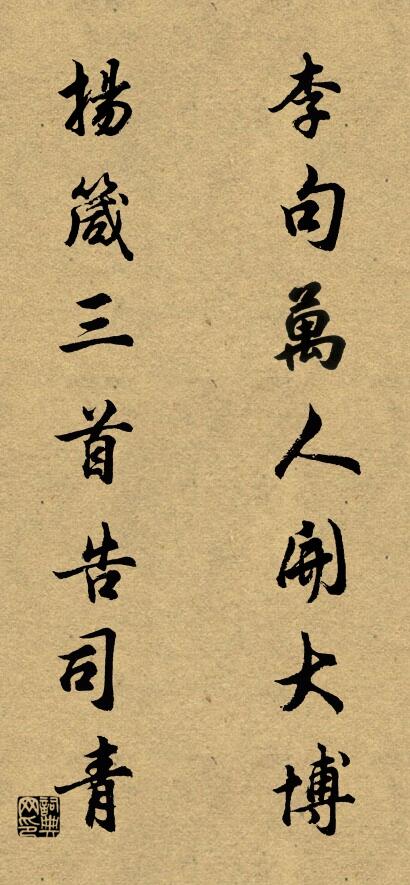 李句萬人開大博
揚箴三首告司青
詞典網印